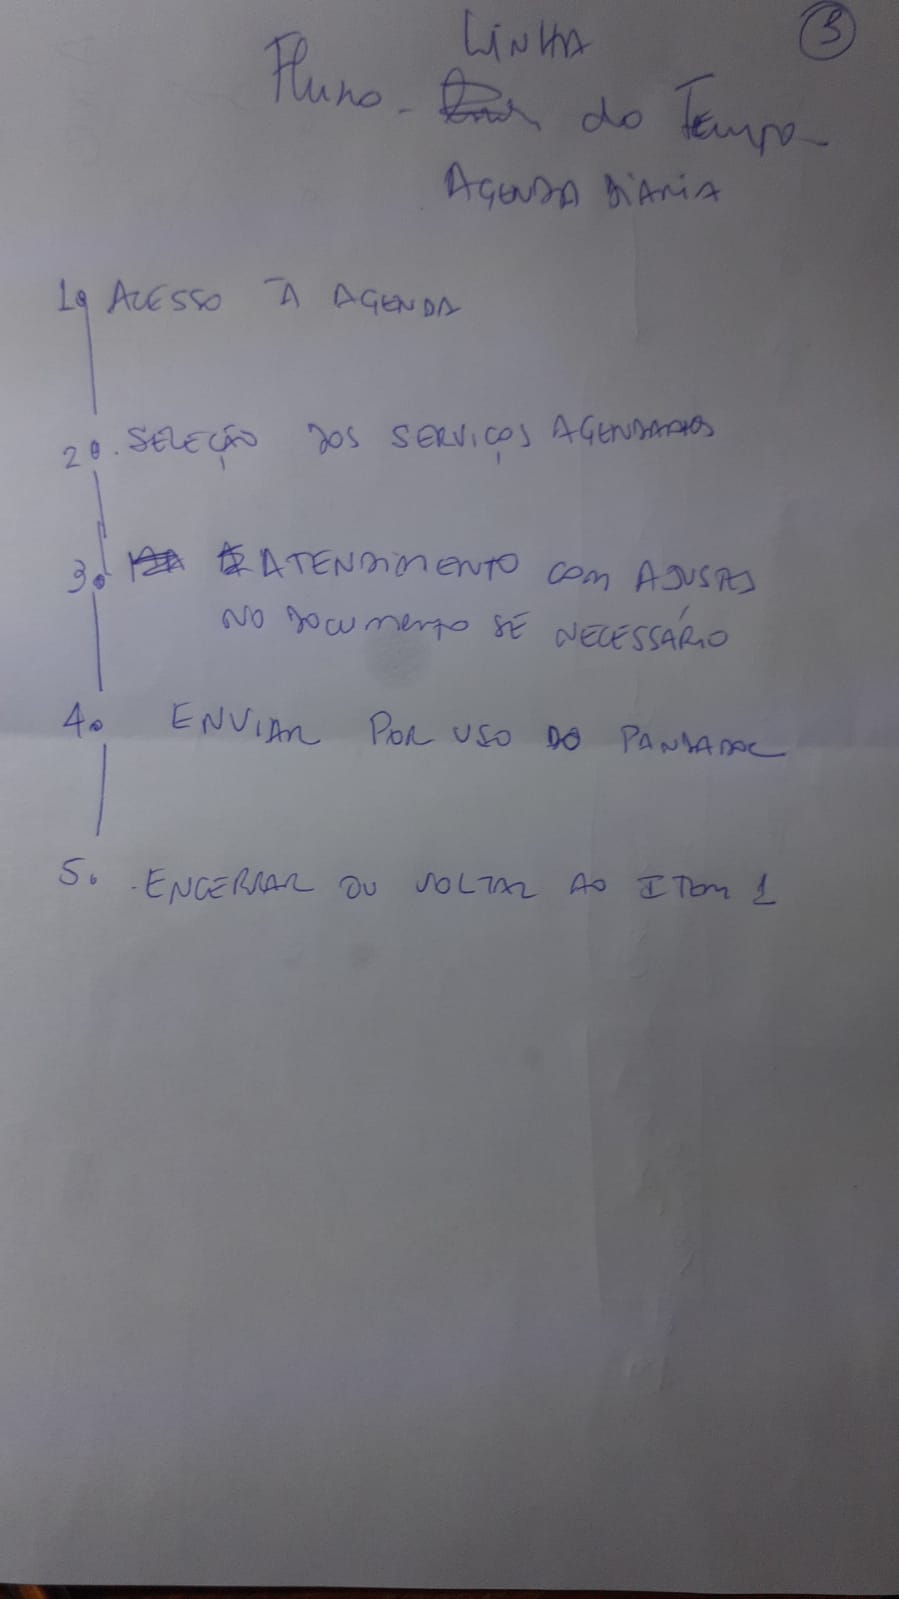 3
LINHA
Fluxo - do Tempo -
AGENDA DIÁRIA
1º ACESSO À AGENDA
2º. SELEÇÃO DOS SERVIÇOS AGENDADOS
3. ATENDIMENTO COM AJUSTES
NO DOCUMENTO SE NECESSÁRIO
4. ENVIAR POR USO DO PANDADOC
5. ENCERRAR OU VOLTAR AO ITEM 1